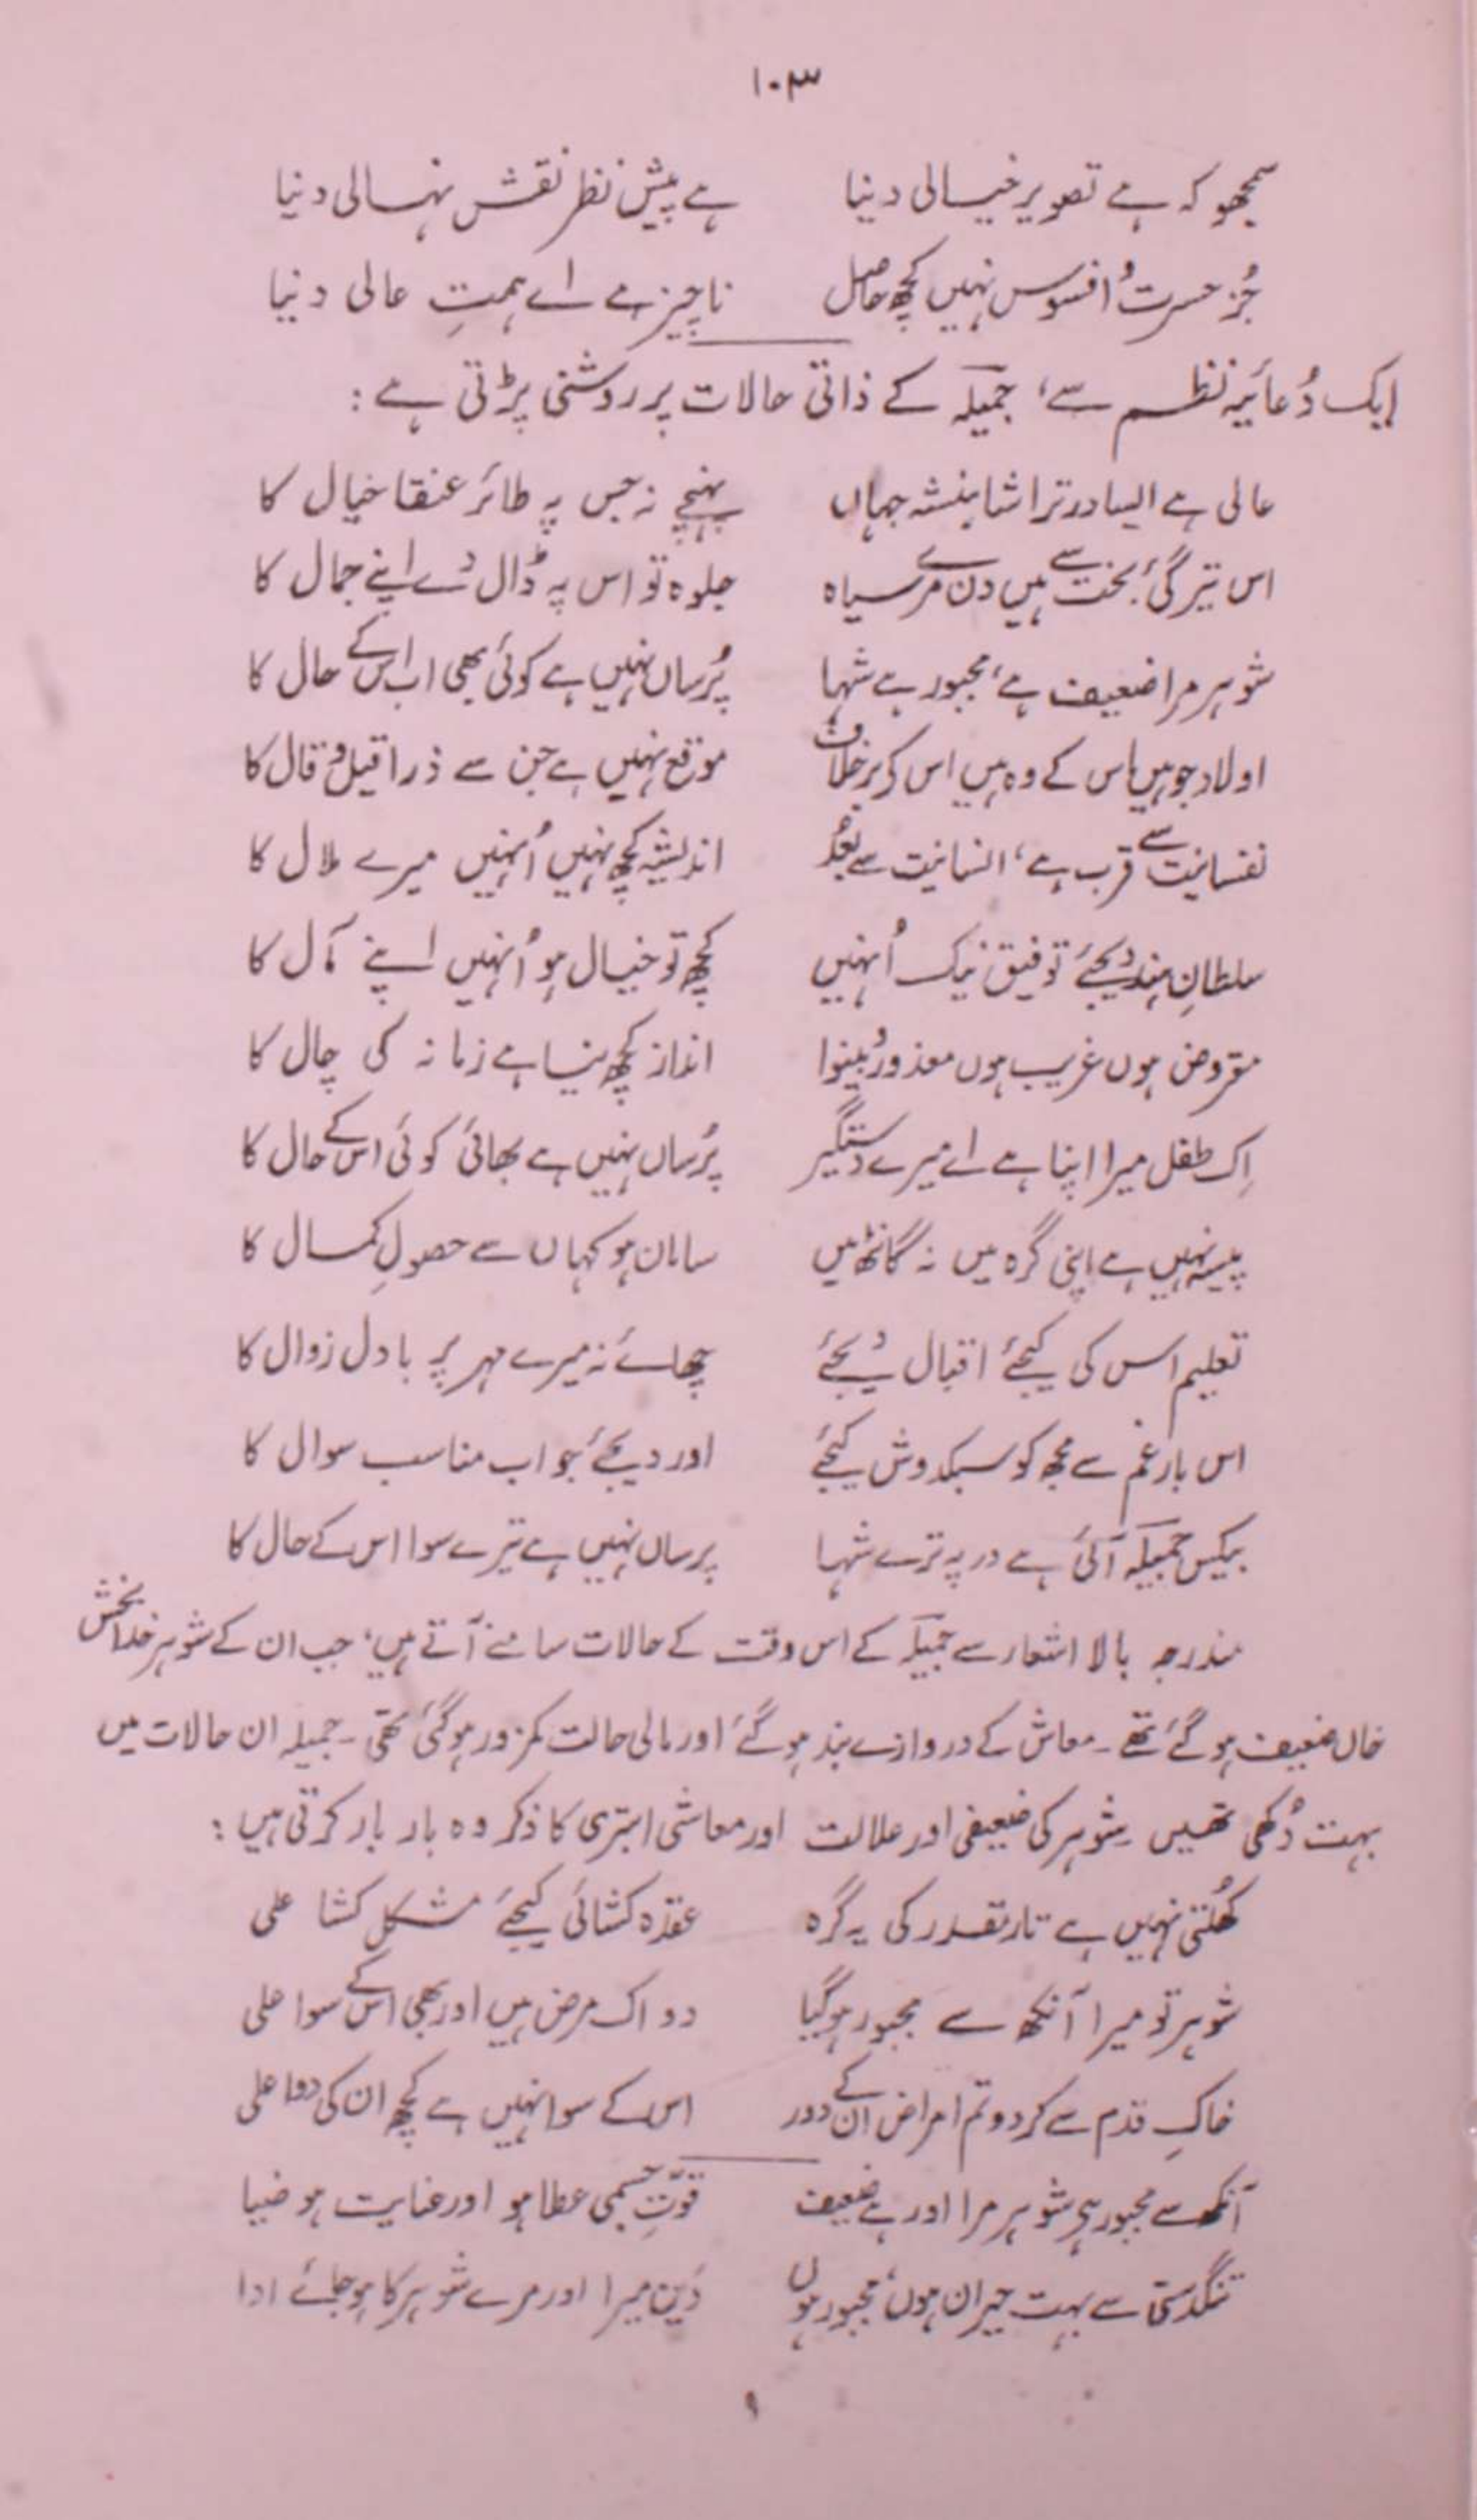 ۱۰۳
سمجھو کہ ہے تصویر خیالی دنیا ہے پیشِ نظر نقش نہالی دنیا
جُز حسرت و افسوس نہیں کچھ حاصل ناچیز ہے اے ہمتِ عالی دنیا
ایک دُعائیہ نظم سے، جمیلہ کے ذاتی حالات پر روشنی پڑتی ہے :
عالی ہے ایسا در ترا شاہنشہ جہاں پہنچے نہ جس پہ طائر عنقا خیال کا
اس تیرگیٔ بخت سے ہیں دن مرے سیاہ جلوہ تو اس پہ ڈال دے اپنے جمال کا
شوہر مرا ضعیف ہے، مجبور ہے شہا پُرساں نہیں ہے کوئی بھی اب اس کے حال کا
اولاد جو ہیں اس کے وہ ہیں اس کے برخلاف موقع نہیں ہے جن سے ذرا قیل و قال کا
نفسانیت سے قرب ہے، انسانیت سے بُعد اندیشہ کچھ نہیں اُنہیں میرے ملال کا
سلطانِ ہند دیجئے توفیق نیک اُنہیں کچھ تو خیال ہو اُنہیں اپنے مآل کا
مقروض ہوں غریب ہوں معذور و بینوا انداز کچھ نیا ہے زمانہ کی چال کا
اِک طفل میرا اپنا ہے اے میرے دستگیر پُرساں نہیں ہے بھائی کوئی اس کے حال کا
پیسہ نہیں ہے اپنی گرہ میں نہ گانٹھ میں سامان ہو کہاں سے حصولِ کمال کا
تعلیم اس کی کیجئے اقبال دیجئے چھائے نہ میرے مہر پر بادل زوال کا
اس بارِ غم سے مجھ کو سبکدوش کیجئے اور دیجئے جواب مناسب سوال کا
بیکس جمیلہ آئی ہے در پہ ترے شہا پرساں نہیں ہے تیرے سوا اس کے حال کا
مندرجہ بالا اشعار سے جمیلہ کے اس وقت کے حالات سامنے آتے ہیں، جب ان کے شوہر خدا بخش
خاں ضعیف ہو گئے تھے۔ معاش کے دروازے بند ہو گئے اور مالی حالت کمزور ہو گئی تھی۔ جمیلہ ان حالات میں
بہت دُکھی تھیں۔ شوہر کی ضعیفی اور علالت اور معاشی ابتری کا ذکر وہ بار بار کرتی ہیں :
کھُلتی نہیں ہے تار تقدر کی یہ گرہ عقدہ کشائی کیجئے مشکل کشا علی
شوہر تو میرا آنکھ سے مجبور ہو گیا دو اک مرض ہیں اور بھی اس کے سوا علی
خاکِ قدم سے کر دو تم امراض ان کے دور اس کے سوا نہیں ہے کچھ ان کی دوا علی
آنکھ سے مجبور ہے شوہر مرا اور ہے ضعیف قوّتِ جسمی عطا ہو اور عنایت ہو ضیا
تنگدستی سے بہت حیران ہوں، مجبور ہوں دَین میرا اور مرے شوہر کا ہو جائے ادا